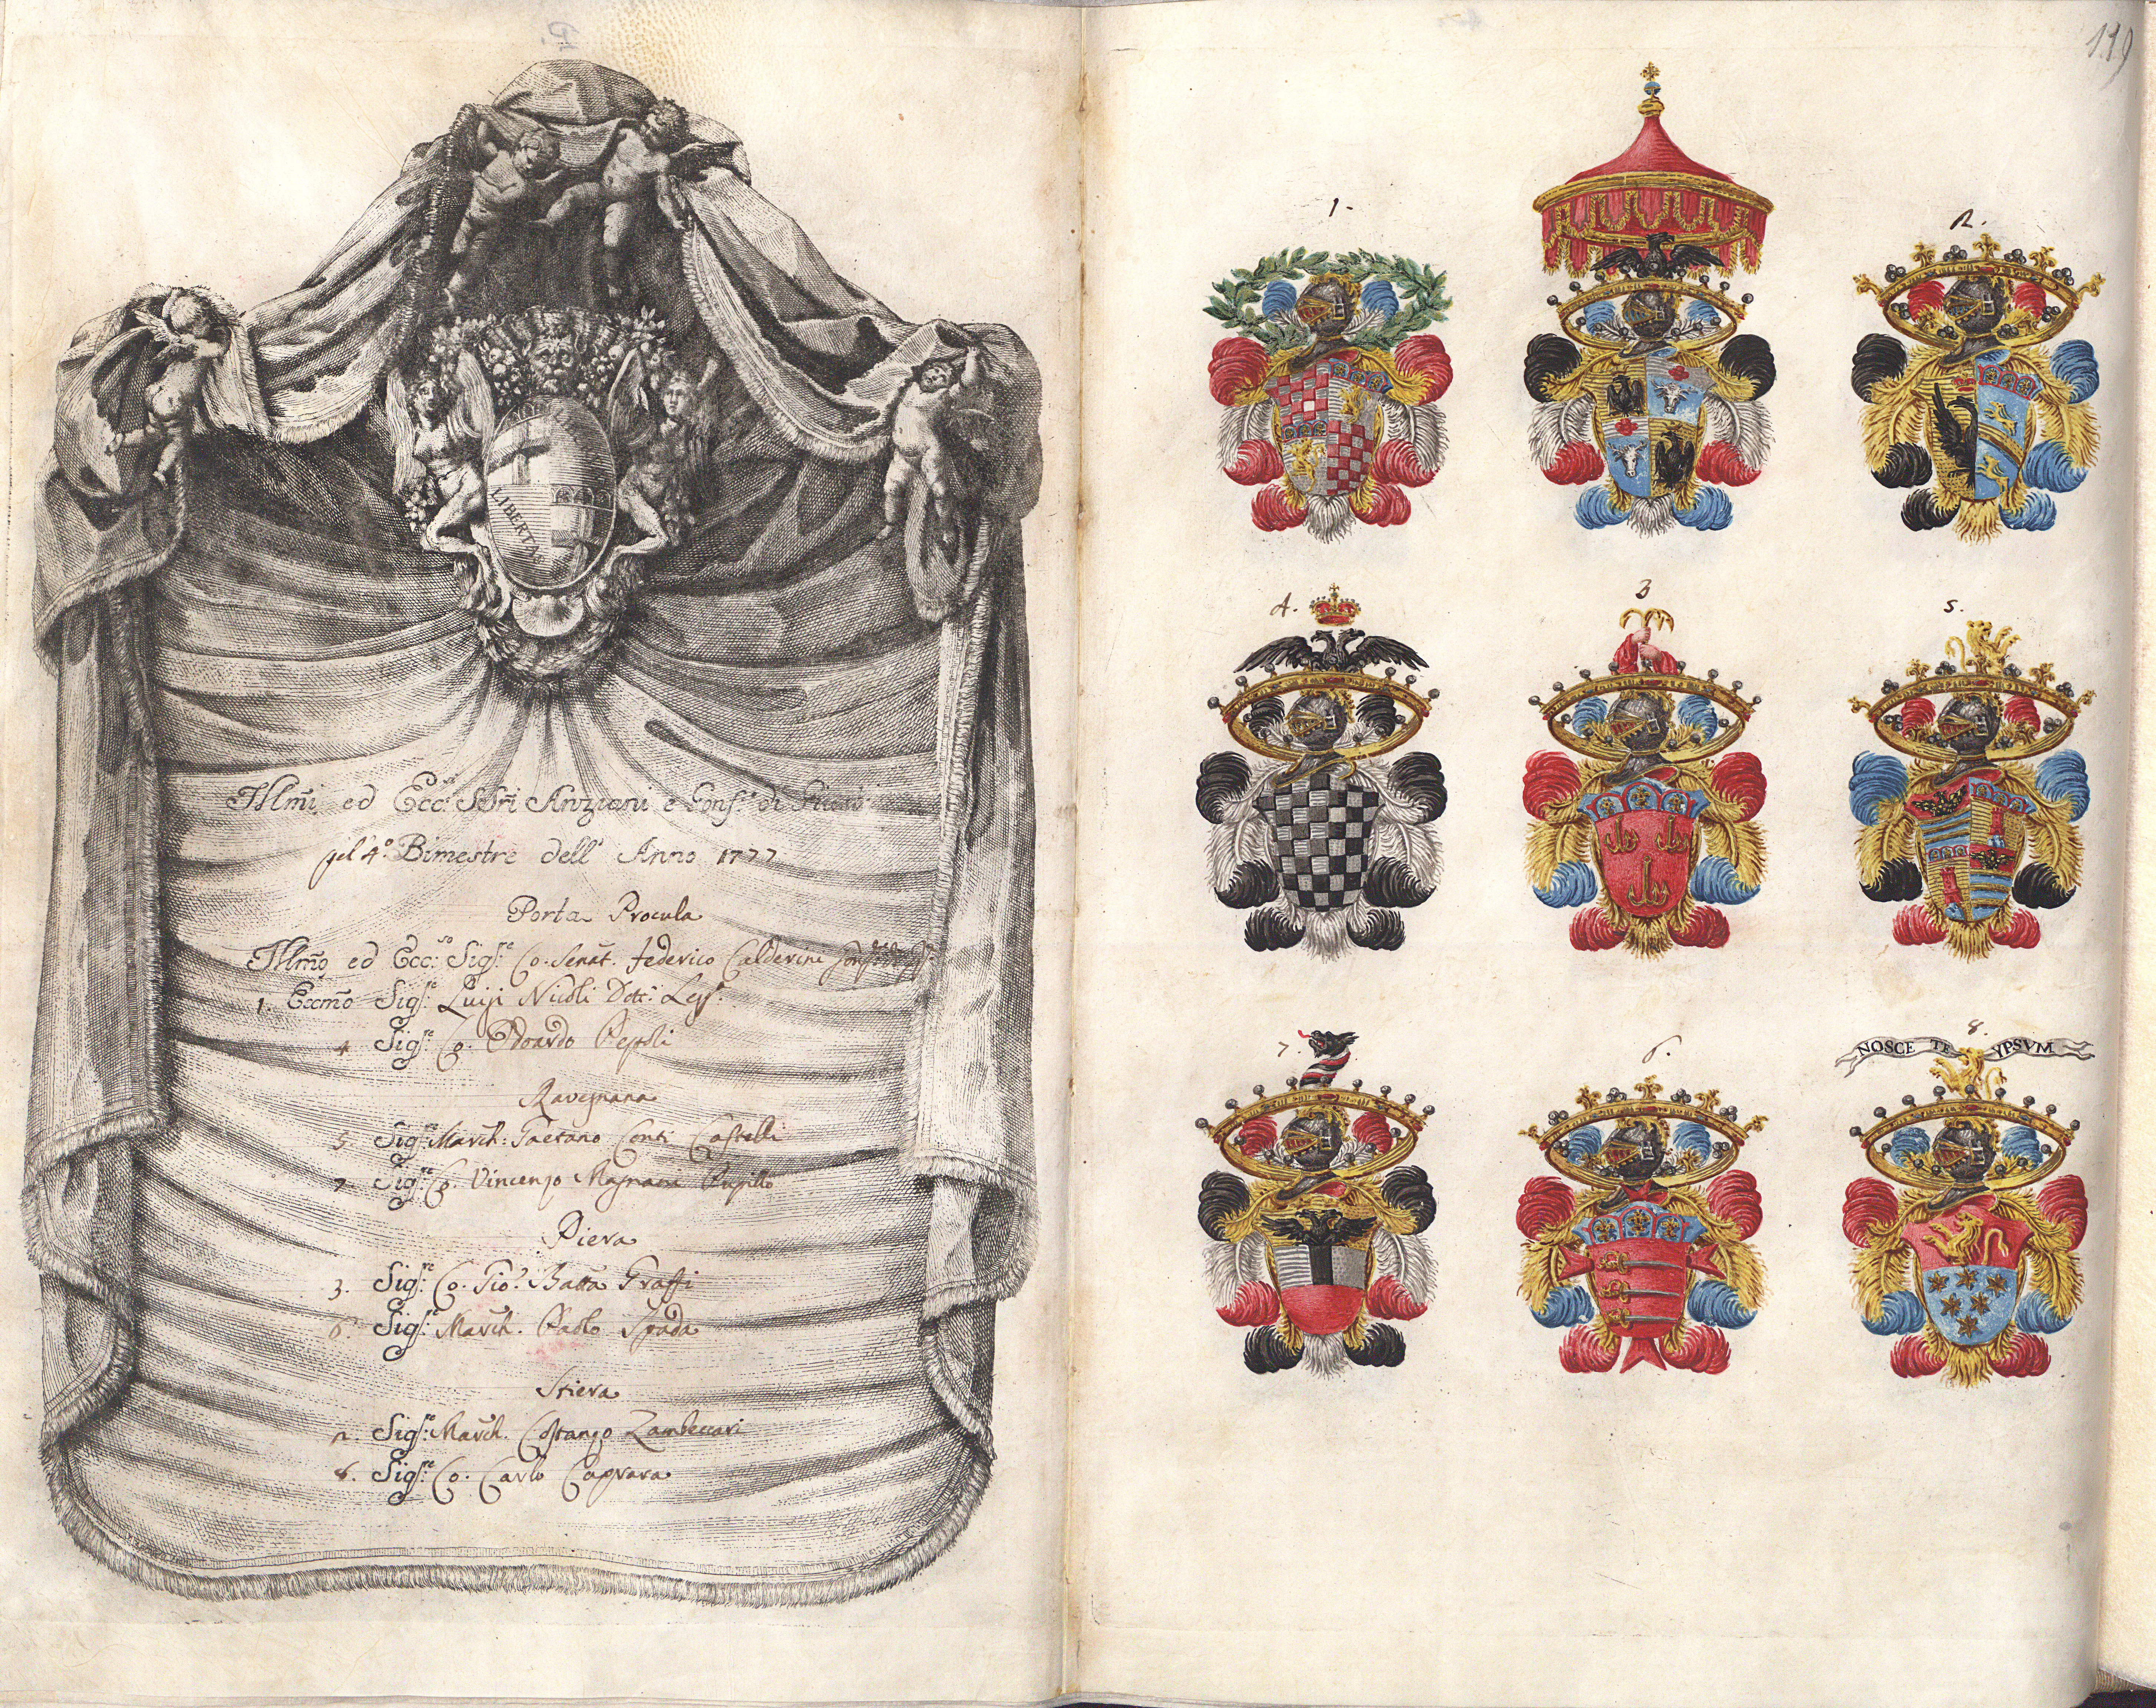 LIBERTA
Illm̃i ed Ecc.si SS.ri Anziani e Cons.i di
pel 4.º Bimestre dell' Anno 1777
Porta Procula
Illm̃o ed Ecc.so Sig.re Co. Senat. Federico Calderini
1. Eccm̃o Sig.re Luigi Nicoli Dott.r Leg.
4 Sig.re Co. Odoardo Pepoli
Ravegnana
5. Sig.re March: Gaetano Conti Castelli
7 Sig.re Co. Vincenzo Magnani
Piera
3. Sig.re Co. Gio. Batta Graffi
6. Sig.re March. Paolo Spada
Stiera
2. Sig.re March. Costanzo Zambeccari
8. Sig.re Co. Carlo Caprara
119
1.
2.
4.
3
5.
7.
6.
8.
NOSCE TE IPSVM